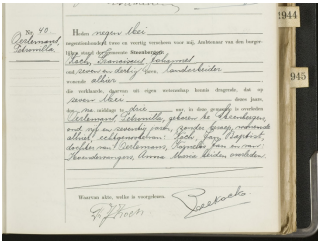 No. 40
Oerlemans,
Petronilla
Heden negen Mei
negentienhonderd twee en veertig verscheen voor mij, Ambtenaar van den burger-
lijken stand der gemeente Steenbergen:
Koch, Franciscus Johannes
oud zeven en dertig jaar, landarbeider
wonende alhier
die verklaarde, daarvan uit eigen wetenschap kennis dragende, dat op
zeven Mei dezes jaars,
des na middags te drie uur, in deze gemeente is overleden
Oerlemans, Petronilla, geboren te Steenbergen,
oud vijf en zeventig jaren, zonder beroep, wonende
alhier, echtgenoote van: Koch, Jan Baptist,
dochter van: Oerlemans, en van:
Anna Maria, beiden overleden
Waarvan akte, welke is voorgelezen.
Koch
1944
945